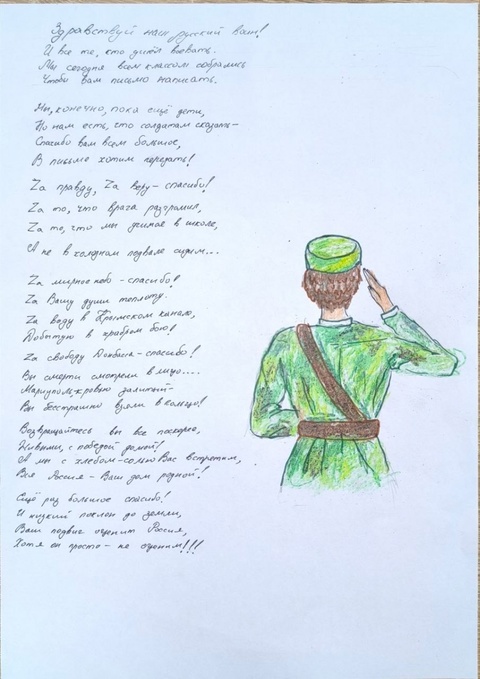 Здравствуй наш русский воин!
И все те, кто ушёл воевать.
Мы сегодня всем классом собрались
Чтобы вам письмо написать.
Мы, конечно, пока ещё дети,
Но нам есть, что солдатам сказать-
Спасибо вам всем большое,
В письме хотим передать!
Zа правду, Zа веру-спасибо!
Zа то, что врага разгромил,
Zа то, что мы учимся в школе,
А не в холодном подвале сидим...
Zа мирное небо - спасибо!
Zа Вашу души теплоту.
Zа воду в Крымском канале,
Добытую в храбром бою!
Zа свободу Донбасса-спасибо!
Вы смерти смотрели в лицо....
Мариуполь кровью залитый-
Вы бесстрашно взяли в кольцо!
Возвращайтесь вы все поскорее,
Живыми, с победой домой!
А мы с хлебом-солью Вас встретим,
Вся Россия - Ваш дом родной!
Ещё раз большое спасибо!
И низкий поклон до земли,
Ваш подвиг оценит Россия,
Хотя он просто - не оценим!!!